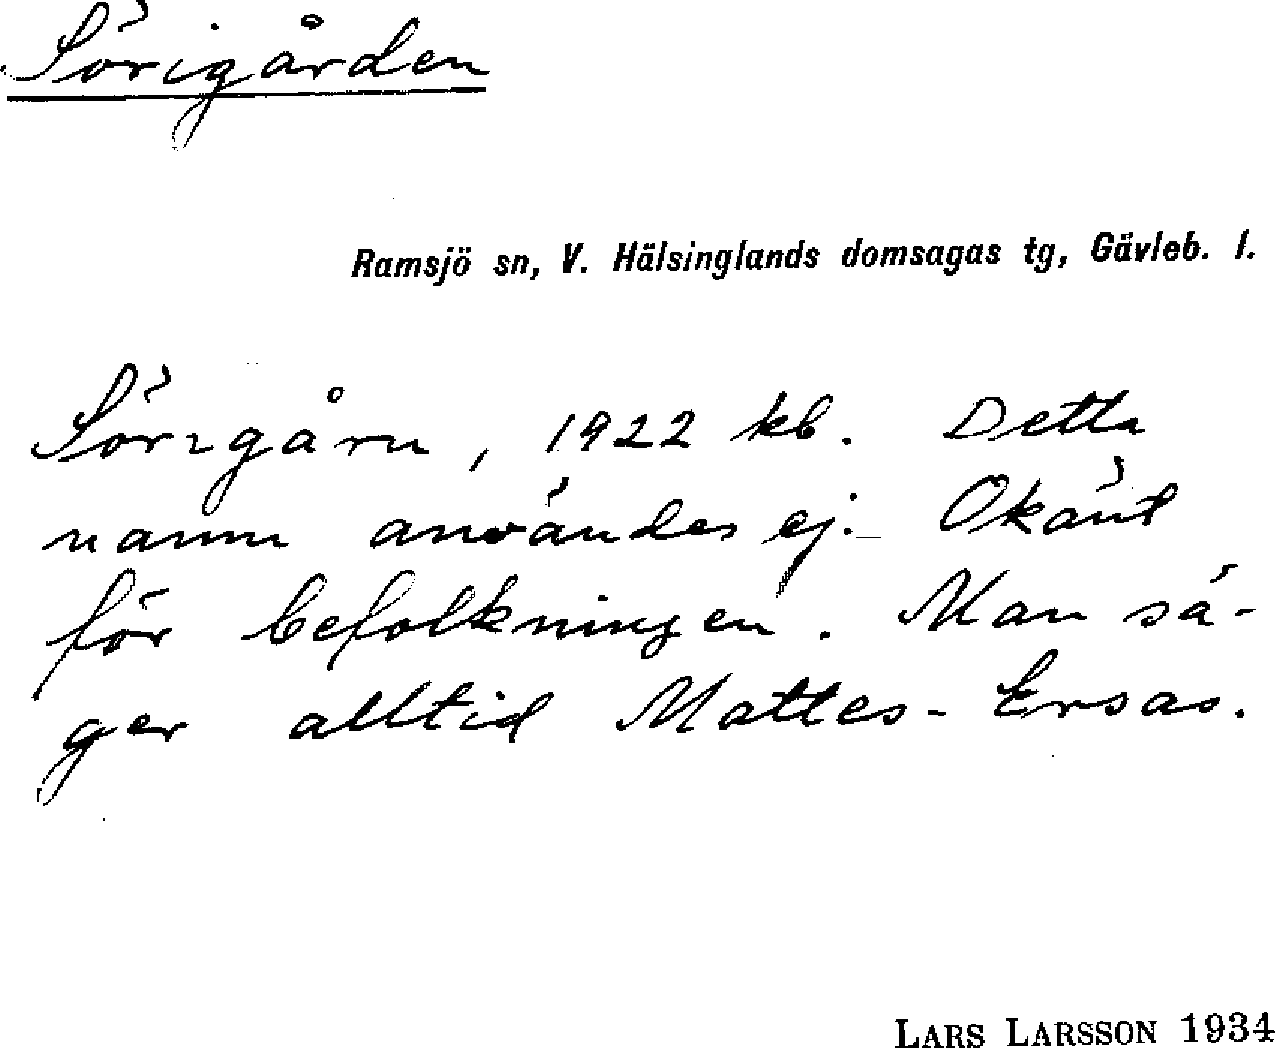 Sörigården
Ramsjö sn, V. Hälsinglands domsagas tg, Gävleb. l.
Sörigårn, 1922 kb. Detta
namn användes ej. - Okänt
för befolkningen. Man sä-
ger alltid Mattes-Ersas.
LARS LARSSON 1934